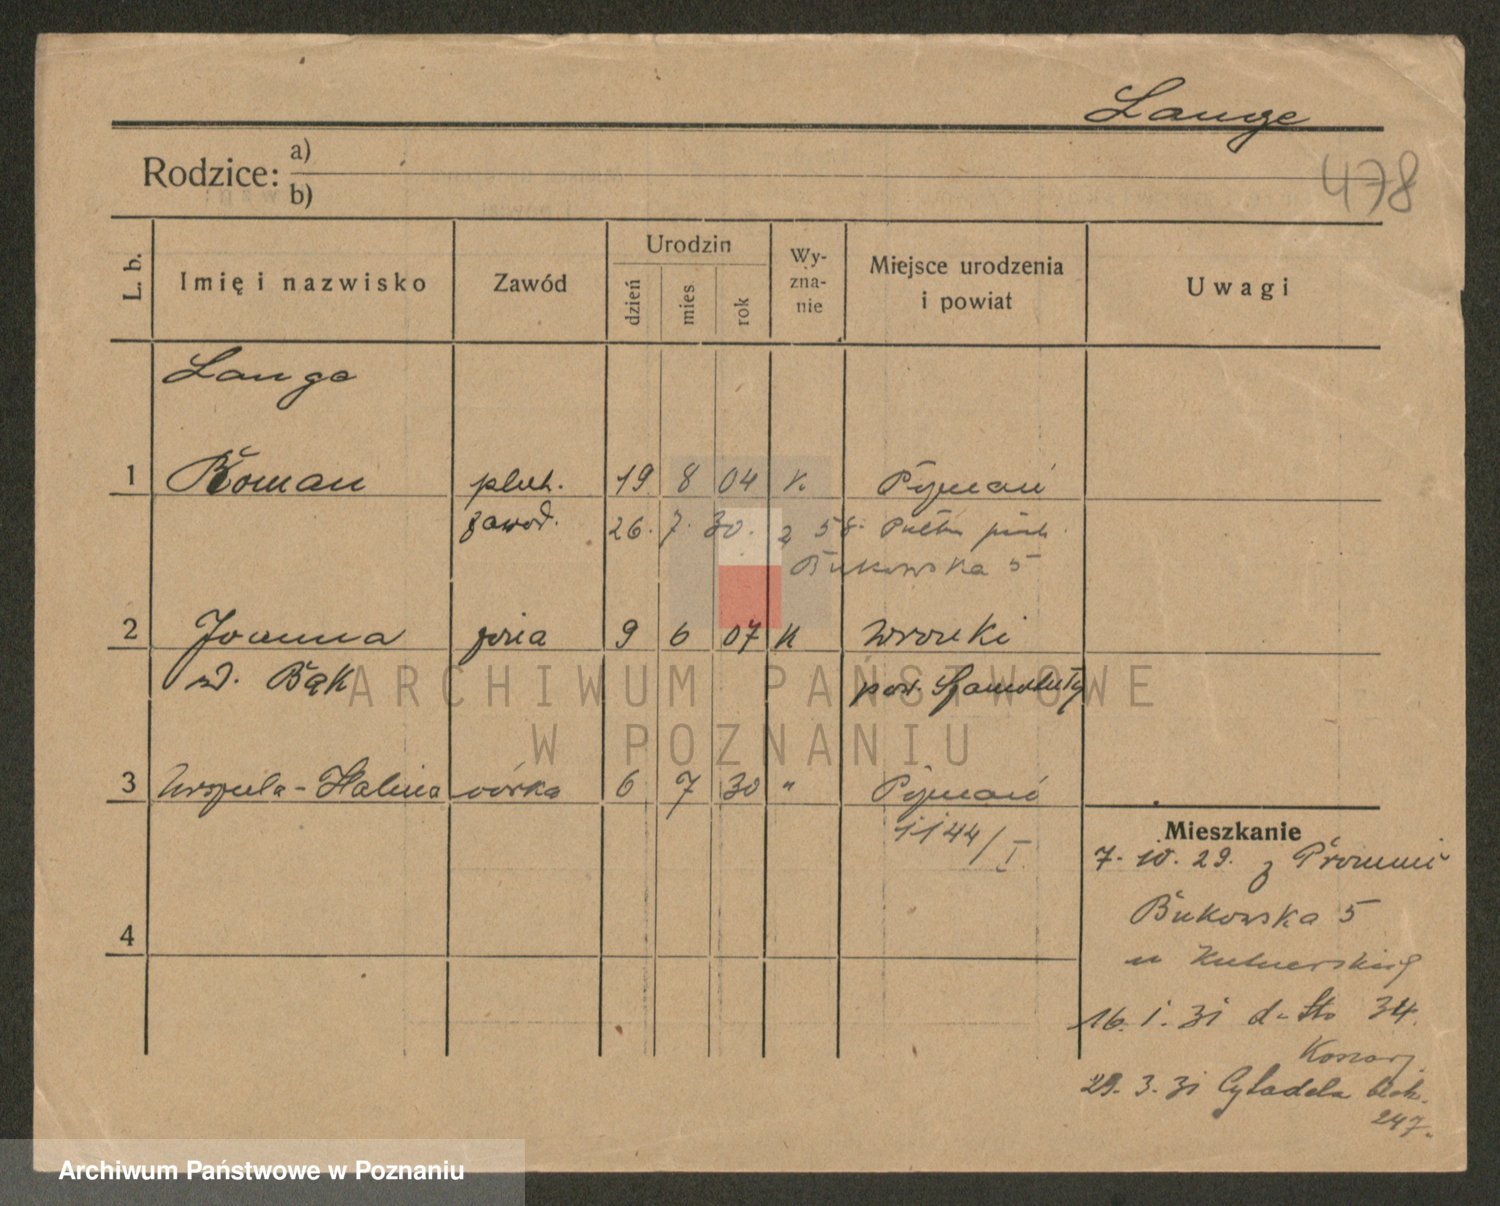 Lange
478
Rodzice: a)
b)
L. b.
Imię i nazwisko
Zawód
Urodzin
dzień
mies
rok
Wy-
zna-
nie
Miejsce urodzenia
i powiat
Uwagi
Lange
1 Roman plut. 19 8 04 K. Poznań
zawod. 26. 7. 30. z 58. Pułku piech.
Bukowska 5
2 Joanna żona 9 6 07 K Wronki
z d. Bąk pow. Szamotuły
3 Urszula-Halina córka 6 7 30 " Poznań
1144/I
4
Mieszkanie
7. 10. 29. z
Bukowska 5
u
16. 1. 31 34.
Koszary
29. 3. 31 Cytadela blok.
247.
ARCHIWUM PAŃSTWOWE
W POZNANIU
Archiwum Państwowe w Poznaniu